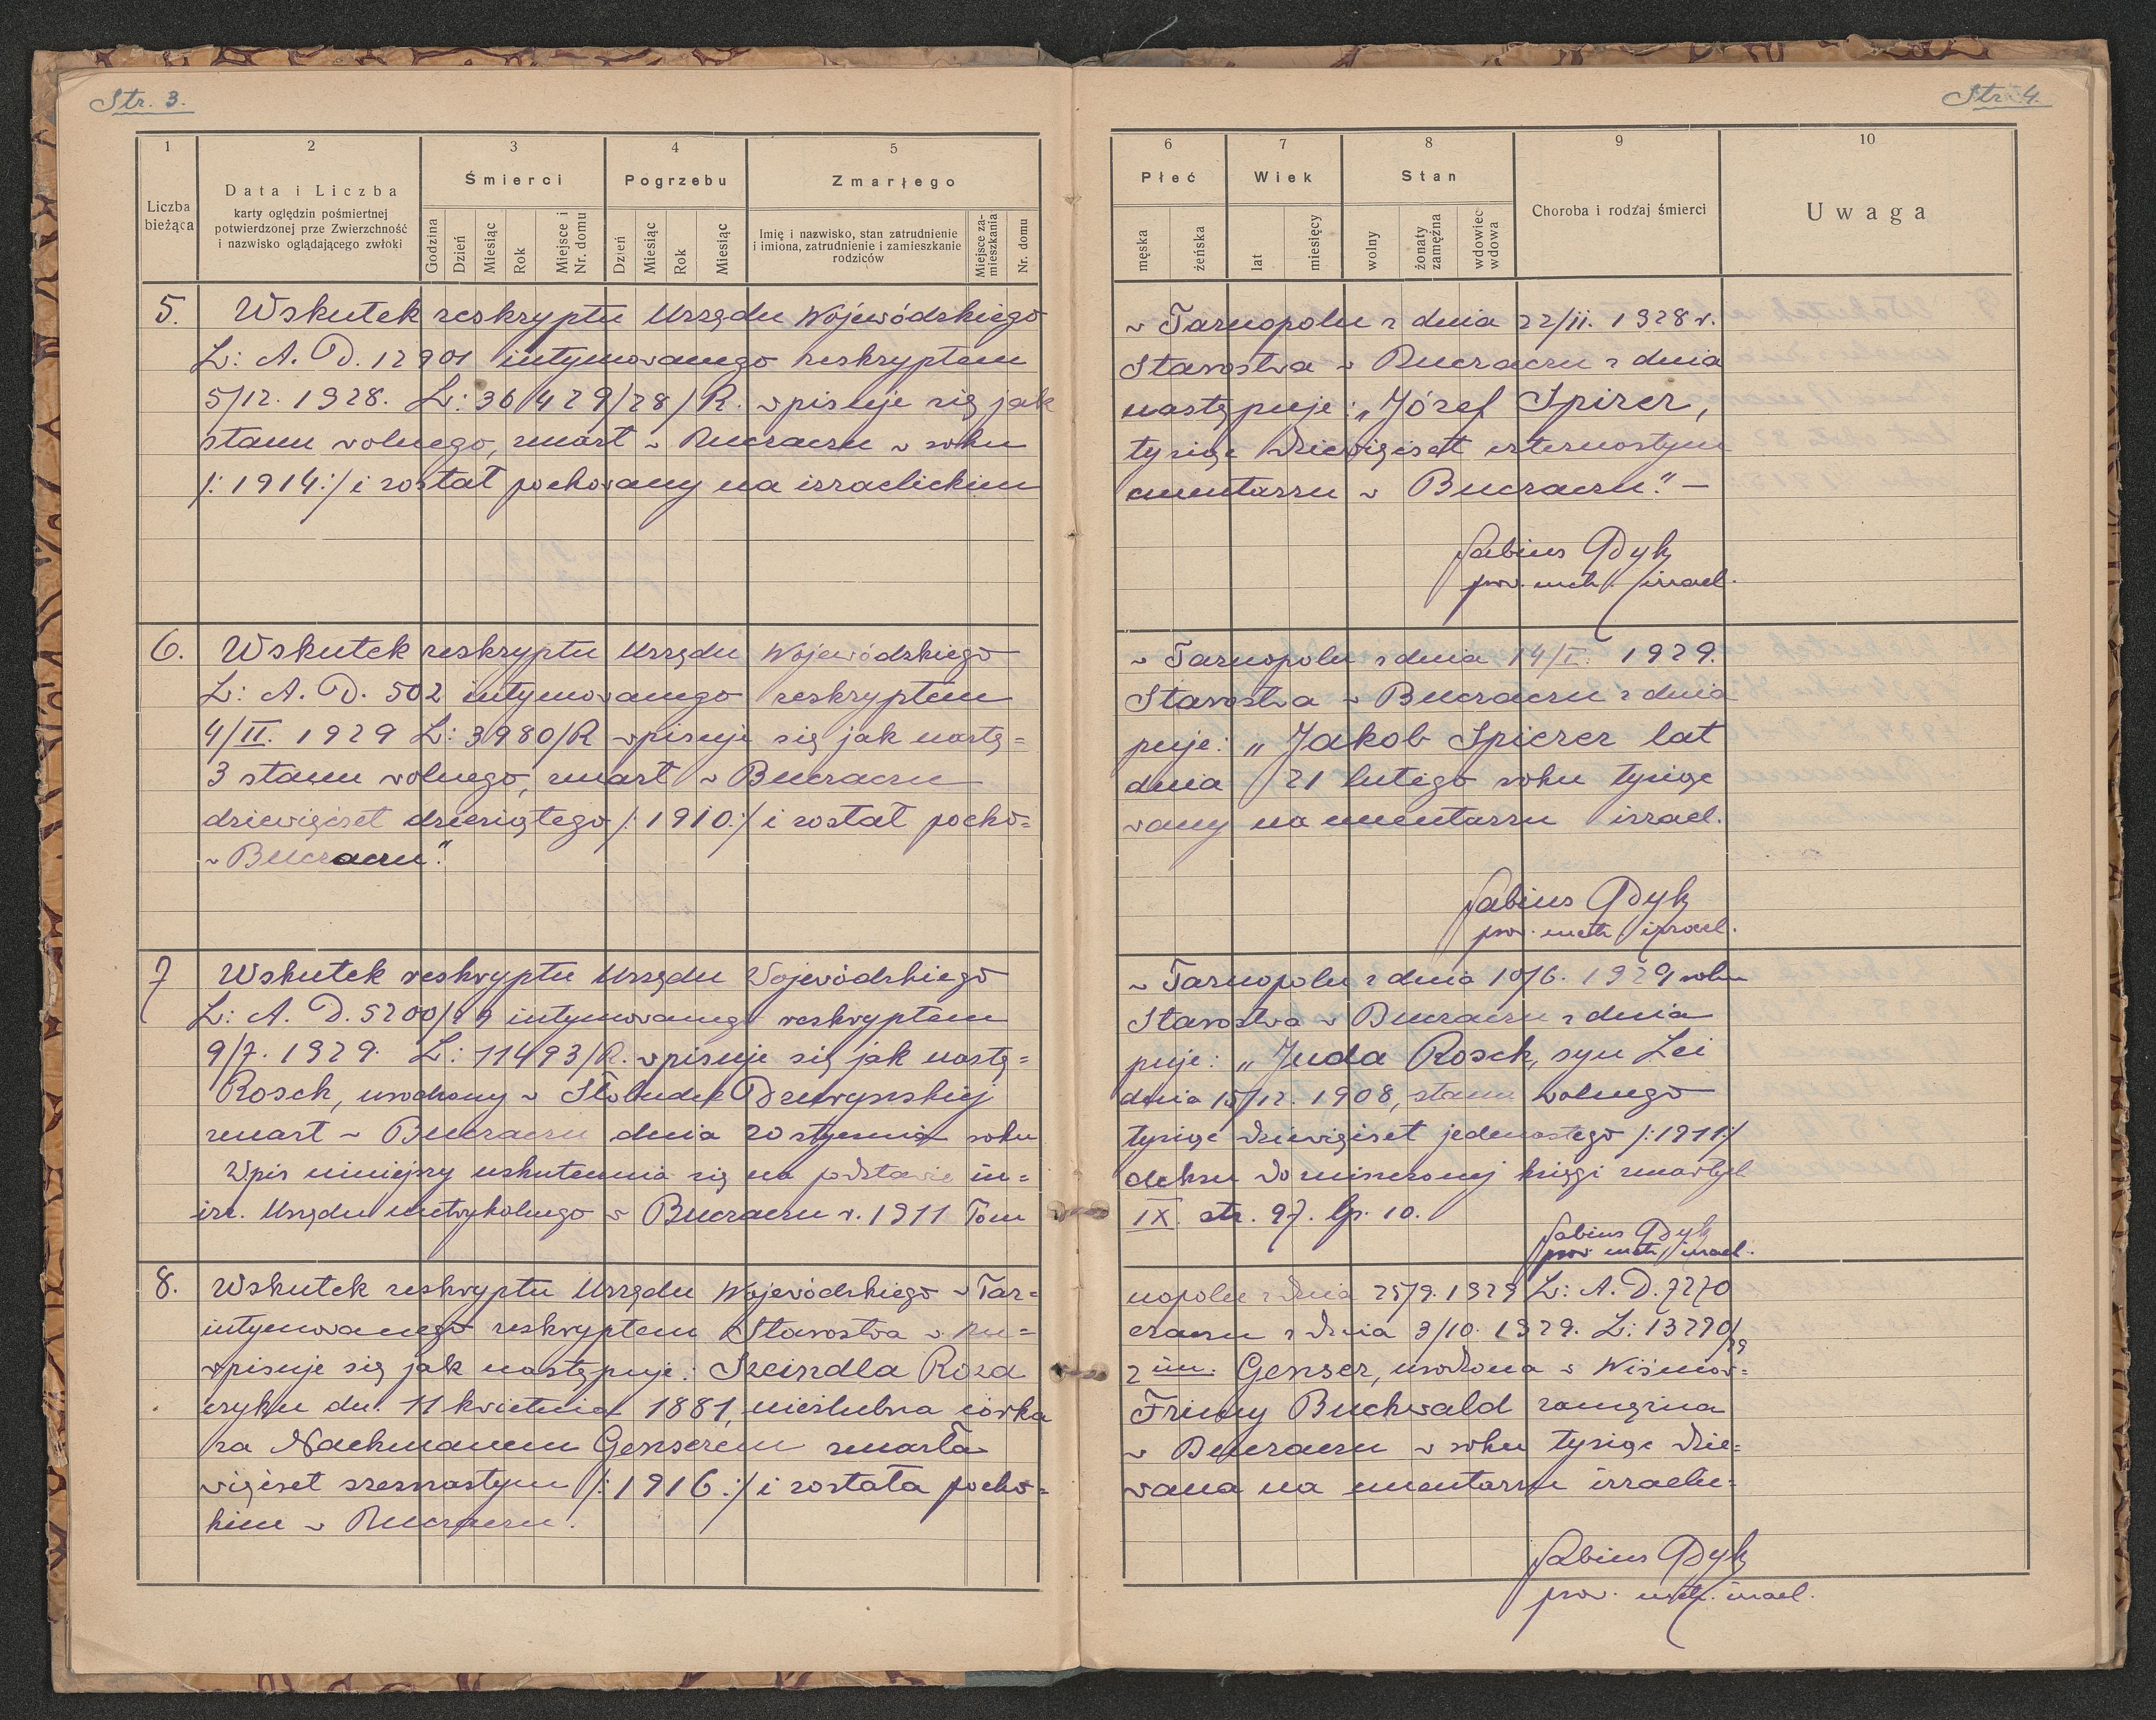 Str. 3.
1
2
3
4
5
Liczba bieżąca
Data i Liczba
karty oględzin pośmiertnej
potwierdzonej prze Zwierzchność
i nazwisko oglądającego zwłoki
Śmierci
Godzina
Dzień
Miesiąc
Rok
Miejsce i Nr. domu
Pogrzebu
Dzień
Miesiąc
Rok
Miesiąc
Zmarłego
Imię i nazwisko, stan zatrudnienie
i imiona, zatrudnienie i zamieszkanie
rodziców
Miejsce zamieszkania
Nr. domu
Str. 4.
6
7
8
9
10
Płeć
męska
żeńska
Wiek
lat
miesięcy
Stan
wolny
żonaty zamężna
wdowiec wdowa
Choroba i rodzaj śmierci
Uwaga
5. Wskutek reskryptu Urzędu Wojewódzkiego w Tarnopolu z dnia 22/11. 1928 r.
L: A. D. 12901 intymowanego reskryptem Starostwa w Buczaczu z dnia
5/12. 1928. L: 36429/28/R. wpisuje się jak następuje: „Józef Spirer,
stanu wolnego, zmarł w Buczaczu w roku tysiąc dziewięćset czternastym
/: 1914:/ i został pochowany na izraelickim cmentarzu w Buczaczu." —
Fabius Dyk
prow. metr. izrael.
6. Wskutek reskryptu Urzędu Wojewódzkiego w Tarnopolu z dnia 14/I. 1929.
L: A. D. 502 intymowanego reskryptem Starostwa w Buczaczu z dnia
4/II. 1929 L: 3980/R wpisuje się jak nastę= puje: „Jakob Spierer lat
3 stanu wolnego, zmarł w Buczaczu dnia 21 lutego roku tysiąc
dziewięćset dziesiątego /: 1910:/ i został pocho= wany na cmentarzu izrael.
w Buczaczu".
Fabius Dyk
prow. metr. izrael.
7 Wskutek reskryptu Urzędu Wojewódzkiego w Tarnopolu z dnia 10/6. 1929 roku
L: A. D. 5200/29 intymowanego reskryptem Starostwa w Buczaczu z dnia
9/7. 1929. L: 11493/R. wpisuje się jak nastę= puje: „Juda Rosck, syn Lei
Rosck, urodzony w Słobudek Dżuryńskiej dnia 15/12. 1908, stanu wolnego
zmarł w Buczaczu dnia 20 stycznia roku tysiąc dziewięćset jedenastego /:1911:/
Wpis niniejszy uskutecznia się na podstawie in= deksu do zniszczonej księgi zmarłych
izr. Urzędu metrykalnego w Buczaczu r. 1911 Tom IX. str. 97. lp. 10.
Fabius Dyk
prow. metr. izrael.
8. Wskutek reskryptu Urzędu Wojewódzkiego w Tar= nopolu z dnia 25/9. 1929 L: A. D. 7270
intymowanego reskryptem Starostwa w Bu= czaczu z dnia 3/10. 1929. L: 13290/29
wpisuje się jak następuje: Szeindla Roza 2 im. Genser, urodzona w Wiśniow=
czyku dn. 11 kwietnia 1881, nieślubna córka Frimy Buchwald zamężna
za Nachmanem Genserem zmarła w Buczaczu w roku tysiąc dzie=
więćset szesnastym /: 1916:/ i została pocho= wana na cmentarzu izraelic=
kim w Buczaczu.
Fabius Dyk
prow. metr. izrael.